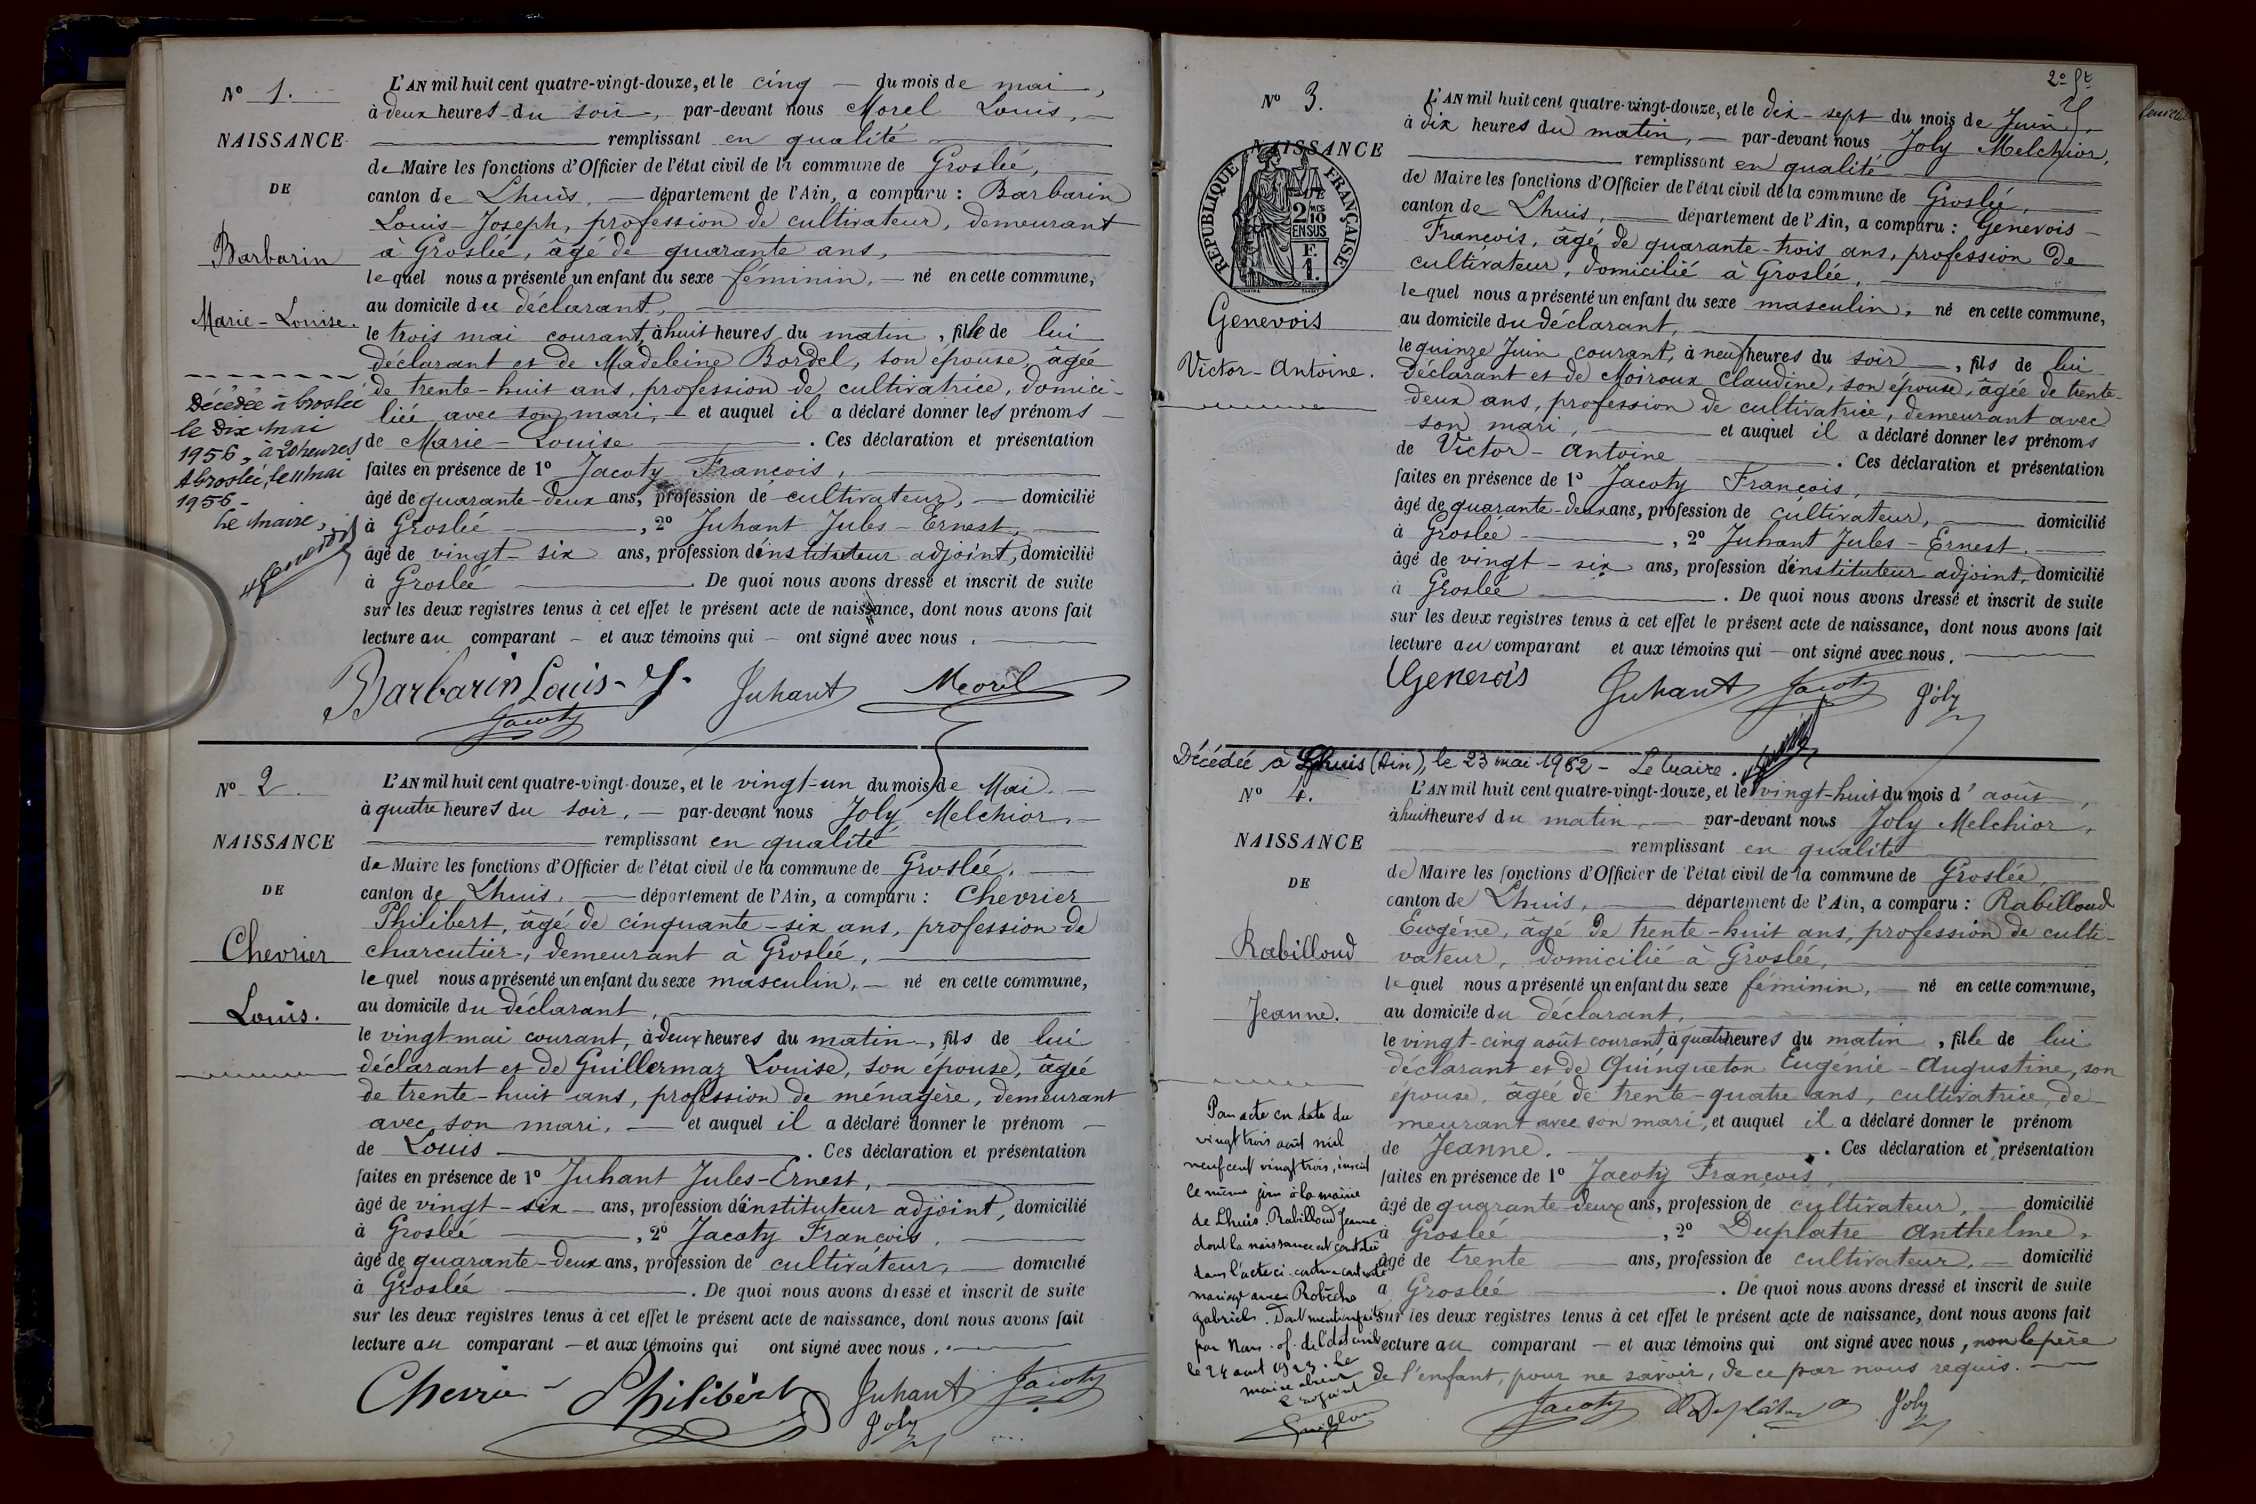 N° 1.
NAISSANCE
DE
Barbarin
Marie-Louise.
Décédée à Groslée
le Dix Mai
1956, à 20 heures
A Groslée, le 11 mai
1956 -
Le Maire,
L'AN mil huit cent quatre-vingt-douze, et le cinq - du mois de mai,
à deux heures du soir, par-devant nous Morel Louis,
remplissant en qualité
de Maire les fonctions d'Officier de l'état civil de la commune de Groslée,
canton de Lhuis, département de l'Ain, a comparu : Barbarin
Louis-Joseph, profession de cultivateur, demeurant
à Groslée, âgé de quarante ans,
lequel nous a présenté un enfant du sexe féminin, né en cette commune,
au domicile du déclarant,
le trois mai courant, à huit heures du matin, fille de lui
déclarant et de Madeleine Bordel, son épouse, âgée
de trente-huit ans, profession de cultivatrice, domici-
liée avec son mari, et auquel il a déclaré donner les prénoms
de Marie-Louise. Ces déclaration et présentation
faites en présence de 1° Jacoty François,
âgé de quarante-deux ans, profession de cultivateur, domicilié
à Groslée, 2° Juhant Jules-Ernest,
âgé de vingt-six ans, profession d'instituteur adjoint, domicilié
à Groslée. De quoi nous avons dressé et inscrit de suite
sur les deux registres tenus à cet effet le présent acte de naissance, dont nous avons fait
lecture au comparant - et aux témoins qui - ont signé avec nous.
Barbarin Louis-J. Juhant Morel
Jacoty
N° 2.
NAISSANCE
DE
Chevrier
Louis.
L'AN mil huit cent quatre-vingt-douze, et le vingt-un du mois de Mai.
à quatre heures du soir, par-devant nous Joly Melchior,
remplissant en qualité
de Maire les fonctions d'Officier de l'état civil de la commune de Groslée,
canton de Lhuis, département de l'Ain, a comparu : Chevrier
Philibert, âgé de cinquante-six ans, profession de
charcutier, demeurant à Groslée,
lequel nous a présenté un enfant du sexe masculin, né en cette commune,
au domicile du déclarant,
le vingt mai courant, à deux heures du matin, fils de lui
déclarant et de Guillermaz Louise, son épouse, âgée
de trente-huit ans, profession de ménagère, demeurant
avec son mari, et auquel il a déclaré donner le prénom
de Louis. Ces déclaration et présentation
faites en présence de 1° Juhant Jules-Ernest,
âgé de vingt-six ans, profession d'instituteur adjoint, domicilié
à Groslée, 2° Jacoty François,
âgé de quarante-deux ans, profession de cultivateur, domicilié
à Groslée. De quoi nous avons dressé et inscrit de suite
sur les deux registres tenus à cet effet le présent acte de naissance, dont nous avons fait
lecture au comparant - et aux témoins qui ont signé avec nous.
Chevrier Philibert Juhant Jacoty
Joly
2e ft
N° 3.
NAISSANCE
DE
RÉPUBLIQUE FRANÇAISE
2/10 EN SUS
F. 1.
Genevois
Victor-Antoine.
L'AN mil huit cent quatre-vingt-douze, et le dix-sept du mois de Juin,
à dix heures du matin, par-devant nous Joly Melchior,
remplissant en qualité
de Maire les fonctions d'Officier de l'état civil de la commune de Groslée,
canton de Lhuis, département de l'Ain, a comparu : Genevois
François, âgé de quarante-trois ans, profession de
cultivateur, domicilié à Groslée,
lequel nous a présenté un enfant du sexe masculin, né en cette commune,
au domicile du déclarant,
le quinze Juin courant, à neuf heures du soir, fils de lui
déclarant et de Moiroux Claudine, son épouse, âgée de trente-
deux ans, profession de cultivatrice, demeurant avec
son mari, et auquel il a déclaré donner les prénoms
de Victor-Antoine. Ces déclaration et présentation
faites en présence de 1° Jacoty François,
âgé de quarante-deux ans, profession de cultivateur, domicilié
à Groslée, 2° Juhant Jules-Ernest,
âgé de vingt-six ans, profession d'instituteur adjoint, domicilié
à Groslée. De quoi nous avons dressé et inscrit de suite
sur les deux registres tenus à cet effet le présent acte de naissance, dont nous avons fait
lecture au comparant et aux témoins qui - ont signé avec nous.
Genevois Juhant Jacoty Joly
Décédée à Lhuis (Ain), le 23 mai 1962 - Le Maire.
N° 4.
NAISSANCE
DE
Rabilloud
Jeanne.
Par acte en date du
vingt trois août mil
neuf cent vingt trois, inscrit
le même jour à la mairie
de Lhuis. Rabilloud Jeanne
dont la naissance est constatée
dans l'acte ci-contre a contracté
mariage avec Robèche
Gabriel. Dont mention faite
par Nous. of. de l'état civil
le 24 août 1923. Le
maire absent
L'adjoint
L'AN mil huit cent quatre-vingt-douze, et le vingt-huit du mois d'août,
à huit heures du matin, par-devant nous Joly Melchior,
remplissant en qualité
de Maire les fonctions d'Officier de l'état civil de la commune de Groslée,
canton de Lhuis, département de l'Ain, a comparu : Rabilloud
Eugène, âgé de trente-huit ans, profession de culti-
vateur, domicilié à Groslée,
lequel nous a présenté un enfant du sexe féminin, né en cette commune,
au domicile du déclarant,
le vingt-cinq août courant, à quatre heures du matin, fille de lui
déclarant et de Quinqueton Eugénie-Augustine, son
épouse, âgée de trente-quatre ans, cultivatrice, de-
meurant avec son mari, et auquel il a déclaré donner le prénom
de Jeanne. Ces déclaration et présentation
faites en présence de 1° Jacoty François
âgé de quarante-deux ans, profession de cultivateur, domicilié
à Groslée, 2° Duplatre Anthelme,
âgé de trente ans, profession de cultivateur, domicilié
à Groslée. De quoi nous avons dressé et inscrit de suite
sur les deux registres tenus à cet effet le présent acte de naissance, dont nous avons fait
lecture au comparant - et aux témoins qui ont signé avec nous, non le père
de l'enfant, pour ne savoir, de ce par nous requis.
Jacoty Duplâtre a Joly